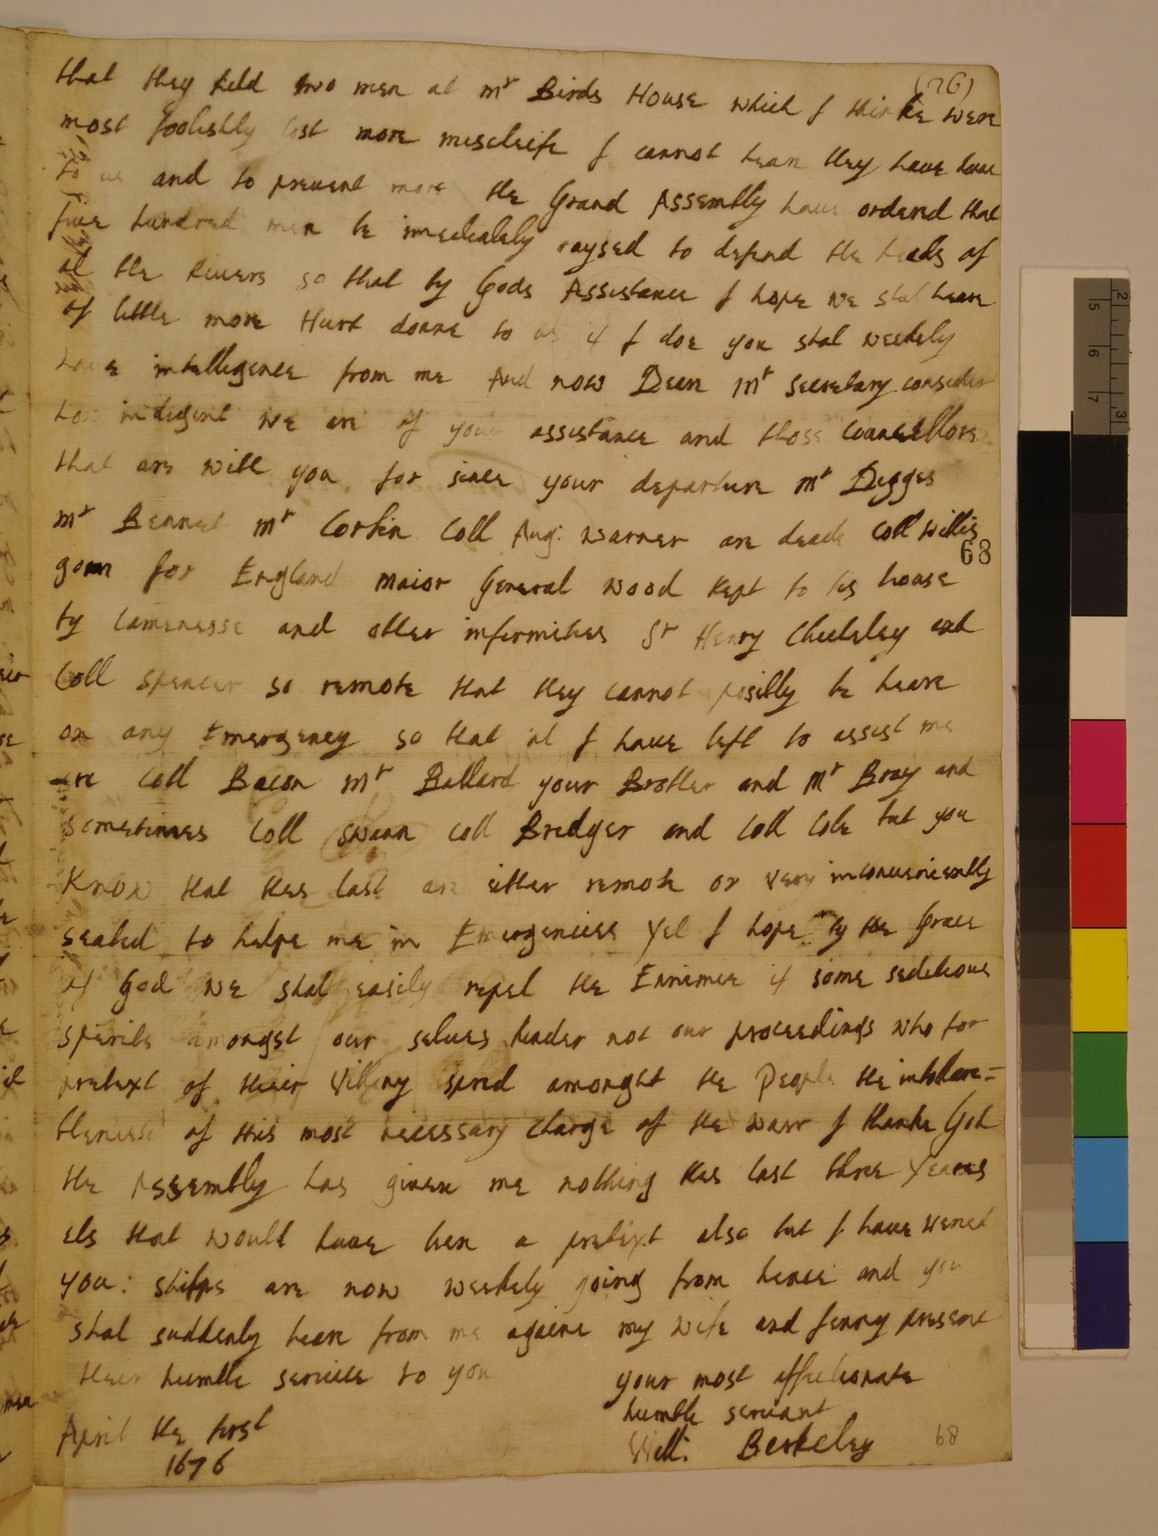 (76)
that they kild two men at mr Birds House which I thinke were
most foolishly lost more mischeife I cannot hear they have done
to us and to prevent more the Grand Assembly have orderd that
five hundred men be imediately raysed to defend the heads of
al the Rivers so that by Gods Assistance I hope we shal heare
of little more Hurt donne to us if I doe you shal weekely
have intelligence from me And now Deare mr Secretary consider
how indigent we are of your assistance and those councellors
that are with you for since your departure mr Digges
mr Bennet mr Corbin Coll Aug: Warner are dead Coll Willis
68
gonn for England maior General Wood kept to his house
by lamenesse and other infirmities Sr Henry Chicheley and
Coll Spencer so remote that they cannot posibly be heare
on any Emergency so that al I have left to assist me
are Coll Bacon mr Ballard your Brother and Mr Bray and
sometimes Coll Swann Coll Bridger and Coll Cole but you
Know that thes last are ether remote or very inconveniently
seated to helpe me in Emergencies yet I hope by the Grace
of God we shal easily repel the Ennimie if some seditious
spirits amongst our selves hinder not our proceedings who for
pretext of their Villany spred amongst the People the intollera=
blenesse of this most necessary charge of the warr I thanke God
the Assembly has given me nothing thes last three Yeares
els that would have ben a pretixt also but I have weried
you: shipps are now weekely going from hence and you
shal suddenly heare from me againe my wife and Jenny present
their humble service to you
your most affectionate
humble servant
Will: Berkeley
April the first
1676
68